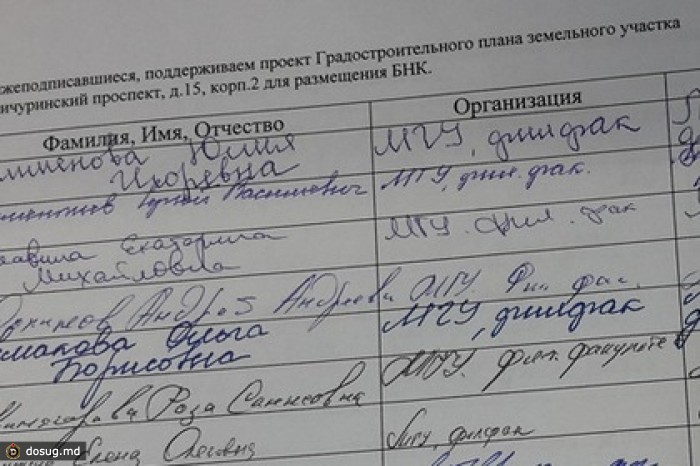 жеподписавшиеся, поддерживаем проект Градостроительного плана земельного участка
ичуринский проспект, д.15, корп.2 для размещения БНК.
Фамилия, Имя, Отчество
Организация
именова Юлия
Игоревна
МГУ, филфак
Васильевич
МГУ, фил. фак.
Екатерина
Михайловна
МГУ. фил. фак
Андрей Андрееви
МГУ. Фил фак.
макова Ольга
Борисовна
МГУ, филфак
Роза
МГУ. фил. факульте
Елена Олеговна
МГУ, филфак
dosug.md